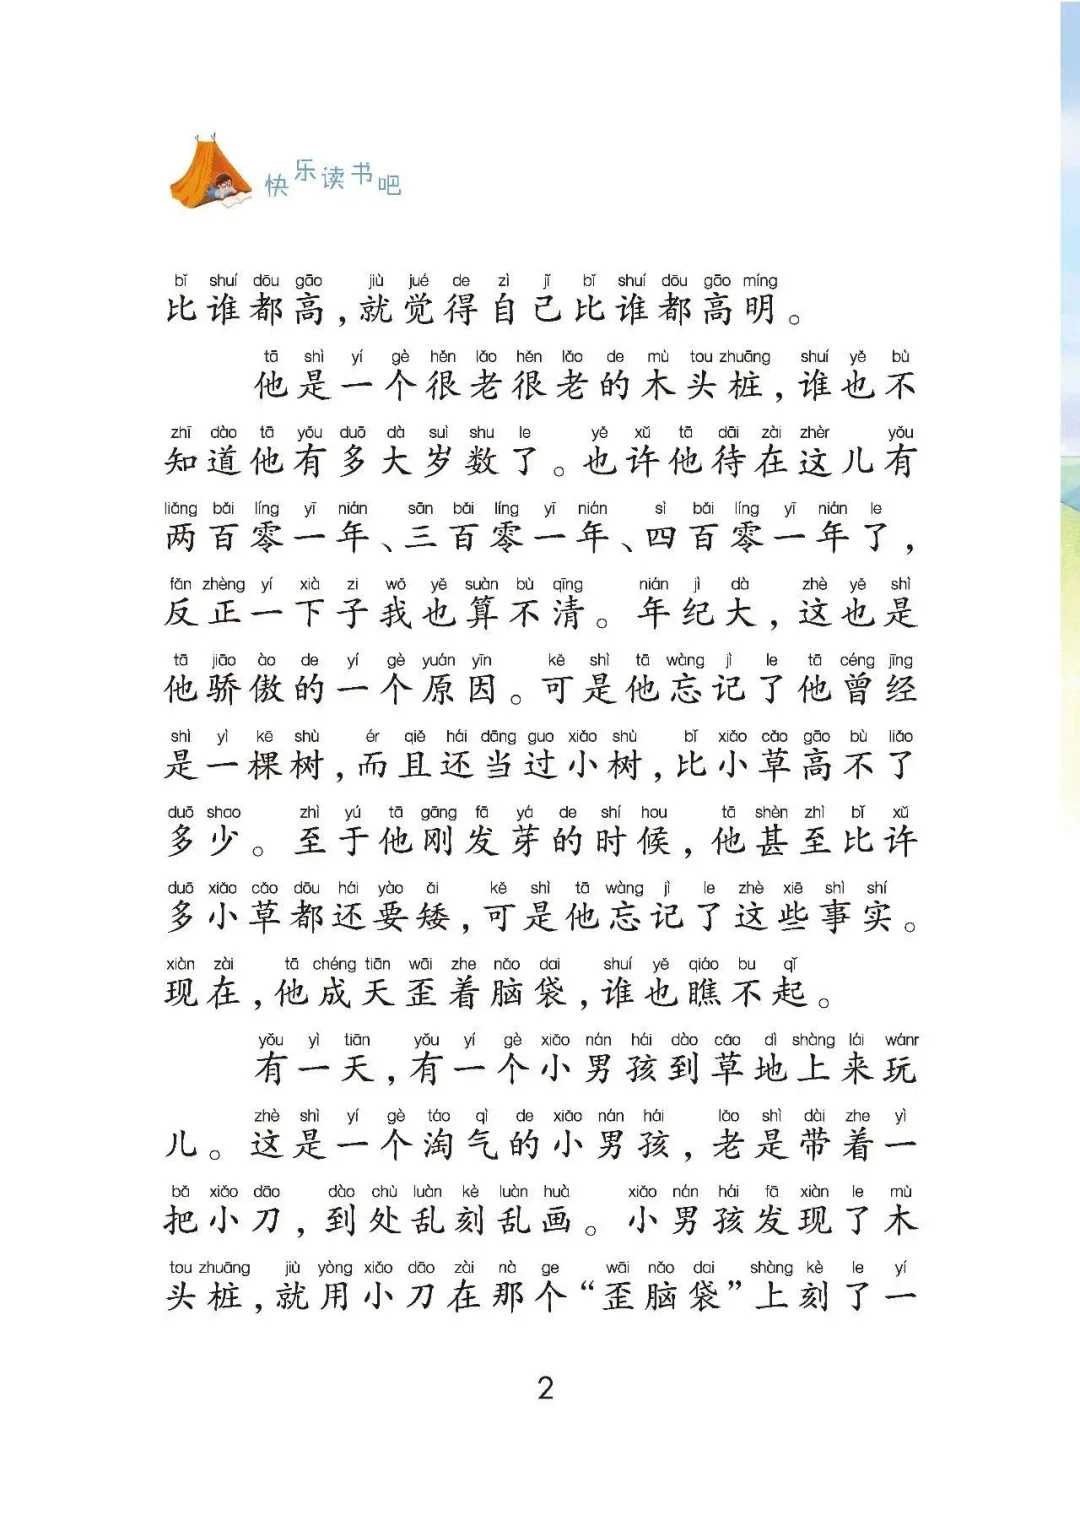 快乐读书吧
bǐ shuí dōu gāo jiù jué de zì jǐ bǐ shuí dōu gāo míng
比谁都高，就觉得自己比谁都高明。
tā shì yí gè hěn lǎo hěn lǎo de mù tou zhuāng shuí yě bù
他是一个很老很老的木头桩，谁也不
zhī dào tā yǒu duō dà suì shu le yě xǔ tā dāi zài zhèr yǒu
知道他有多大岁数了。也许他待在这儿有
liǎng bǎi líng yī nián sān bǎi líng yī nián sì bǎi líng yī nián le
两百零一年、三百零一年、四百零一年了，
fǎn zhèng yí xià zi wǒ yě suàn bù qīng nián jì dà zhè yě shì
反正一下子我也算不清。年纪大，这也是
tā jiāo ào de yí gè yuán yīn kě shì tā wàng jì le tā céng jīng
他骄傲的一个原因。可是他忘记了他曾经
shì yì kē shù ér qiě hái dāng guo xiǎo shù bǐ xiǎo cǎo gāo bù liǎo
是一棵树，而且还当过小树，比小草高不了
duō shao zhì yú tā gāng fā yá de shí hou tā shèn zhì bǐ xǔ
多少。至于他刚发芽的时候，他甚至比许
duō xiǎo cǎo dōu hái yào ǎi kě shì tā wàng jì le zhè xiē shì shí
多小草都还要矮，可是他忘记了这些事实。
xiàn zài tā chéng tiān wāi zhe nǎo dai shuí yě qiáo bu qǐ
现在，他成天歪着脑袋，谁也瞧不起。
yǒu yì tiān yǒu yí gè xiǎo nán hái dào cǎo dì shàng lái wánr
有一天，有一个小男孩到草地上来玩
zhè shì yí gè táo qì de xiǎo nán hái lǎo shì dài zhe yì
儿。这是一个淘气的小男孩，老是带着一
bǎ xiǎo dāo dào chù luàn kè luàn huà xiǎo nán hái fā xiàn le mù
把小刀，到处乱刻乱画。小男孩发现了木
tou zhuāng jiù yòng xiǎo dāo zài nà ge wāi nǎo dai shàng kè le yí
头桩，就用小刀在那个“歪脑袋”上刻了一
2